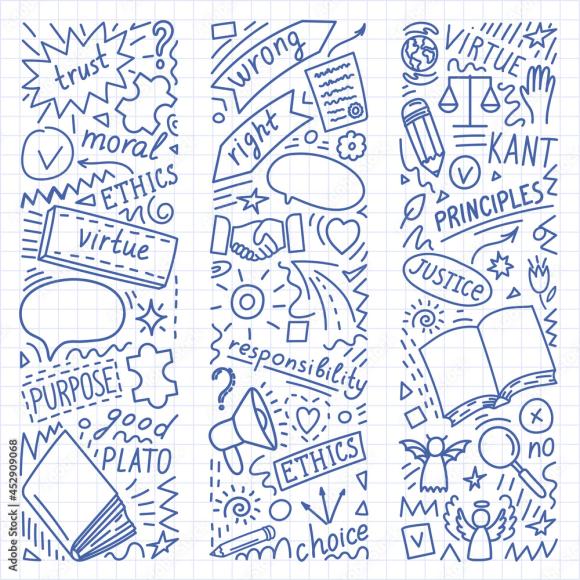 trust
moral
ETHICS
virtue
PURPOSE
good
PLATO
wrong
right
responsibility
ETHICS
choice
VIRTUE
KANT
PRINCIPLES
JUSTICE
no
Adobe Stock | #452909068